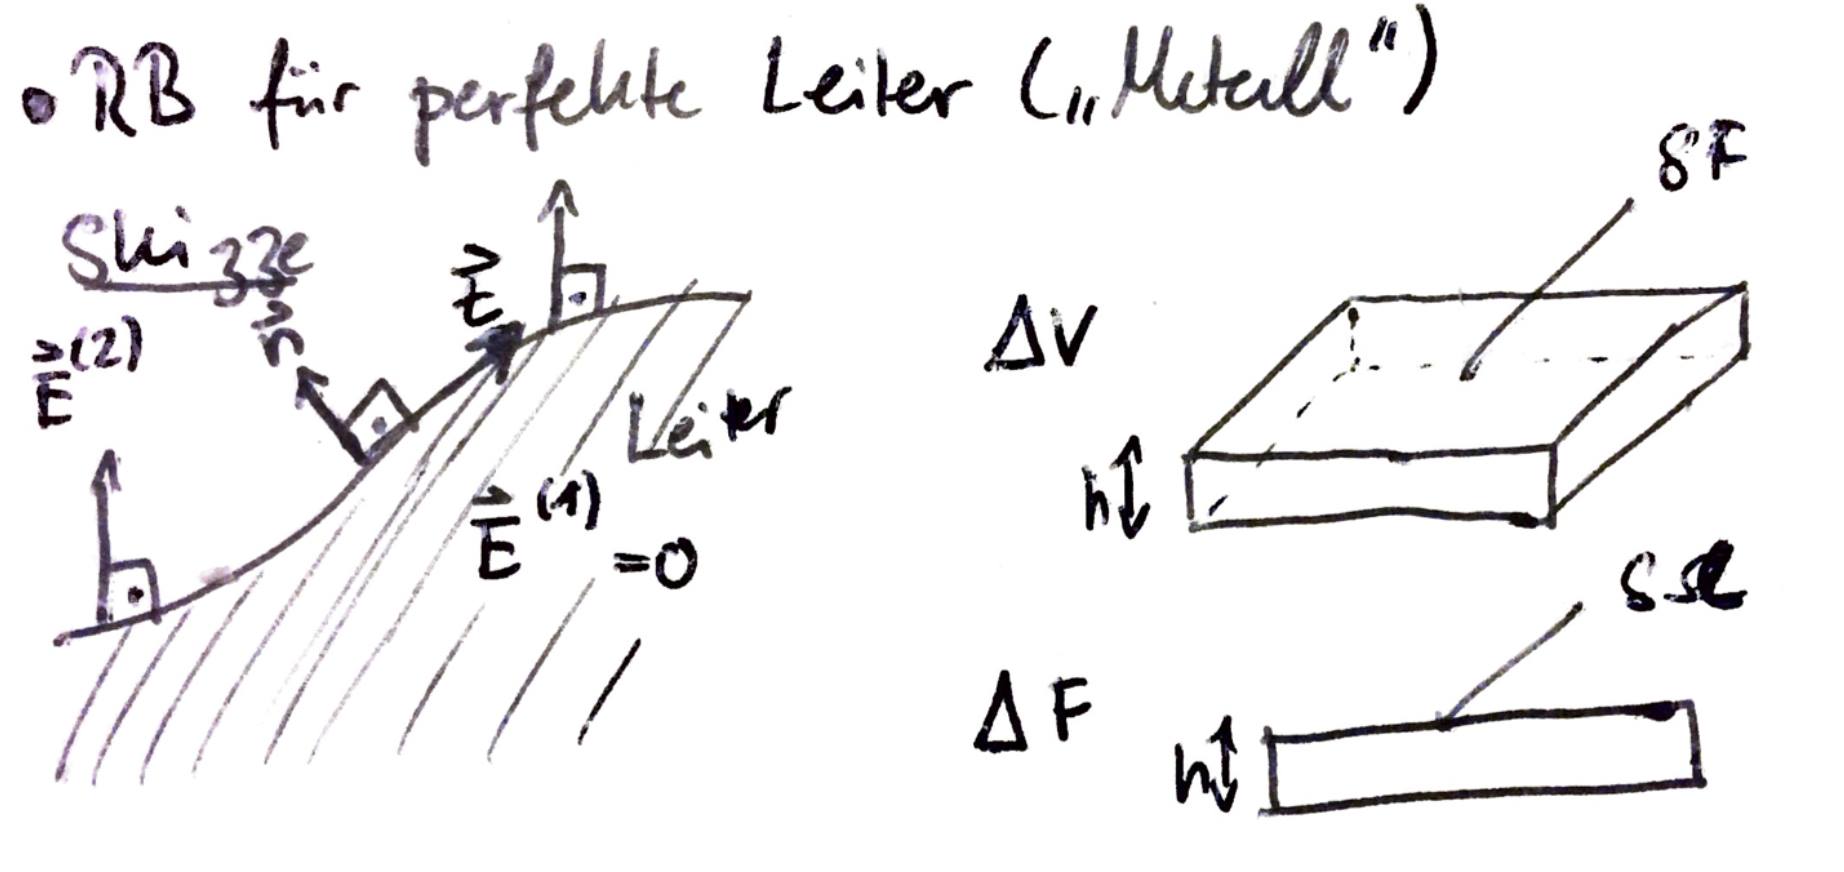 • RB für perfekte Leiter („Metall“)
Skizze
δF
E⃗⁽²⁾
n⃗
t⃗
ΔV
Leiter
h
E⃗⁽¹⁾ = 0
ΔF
h